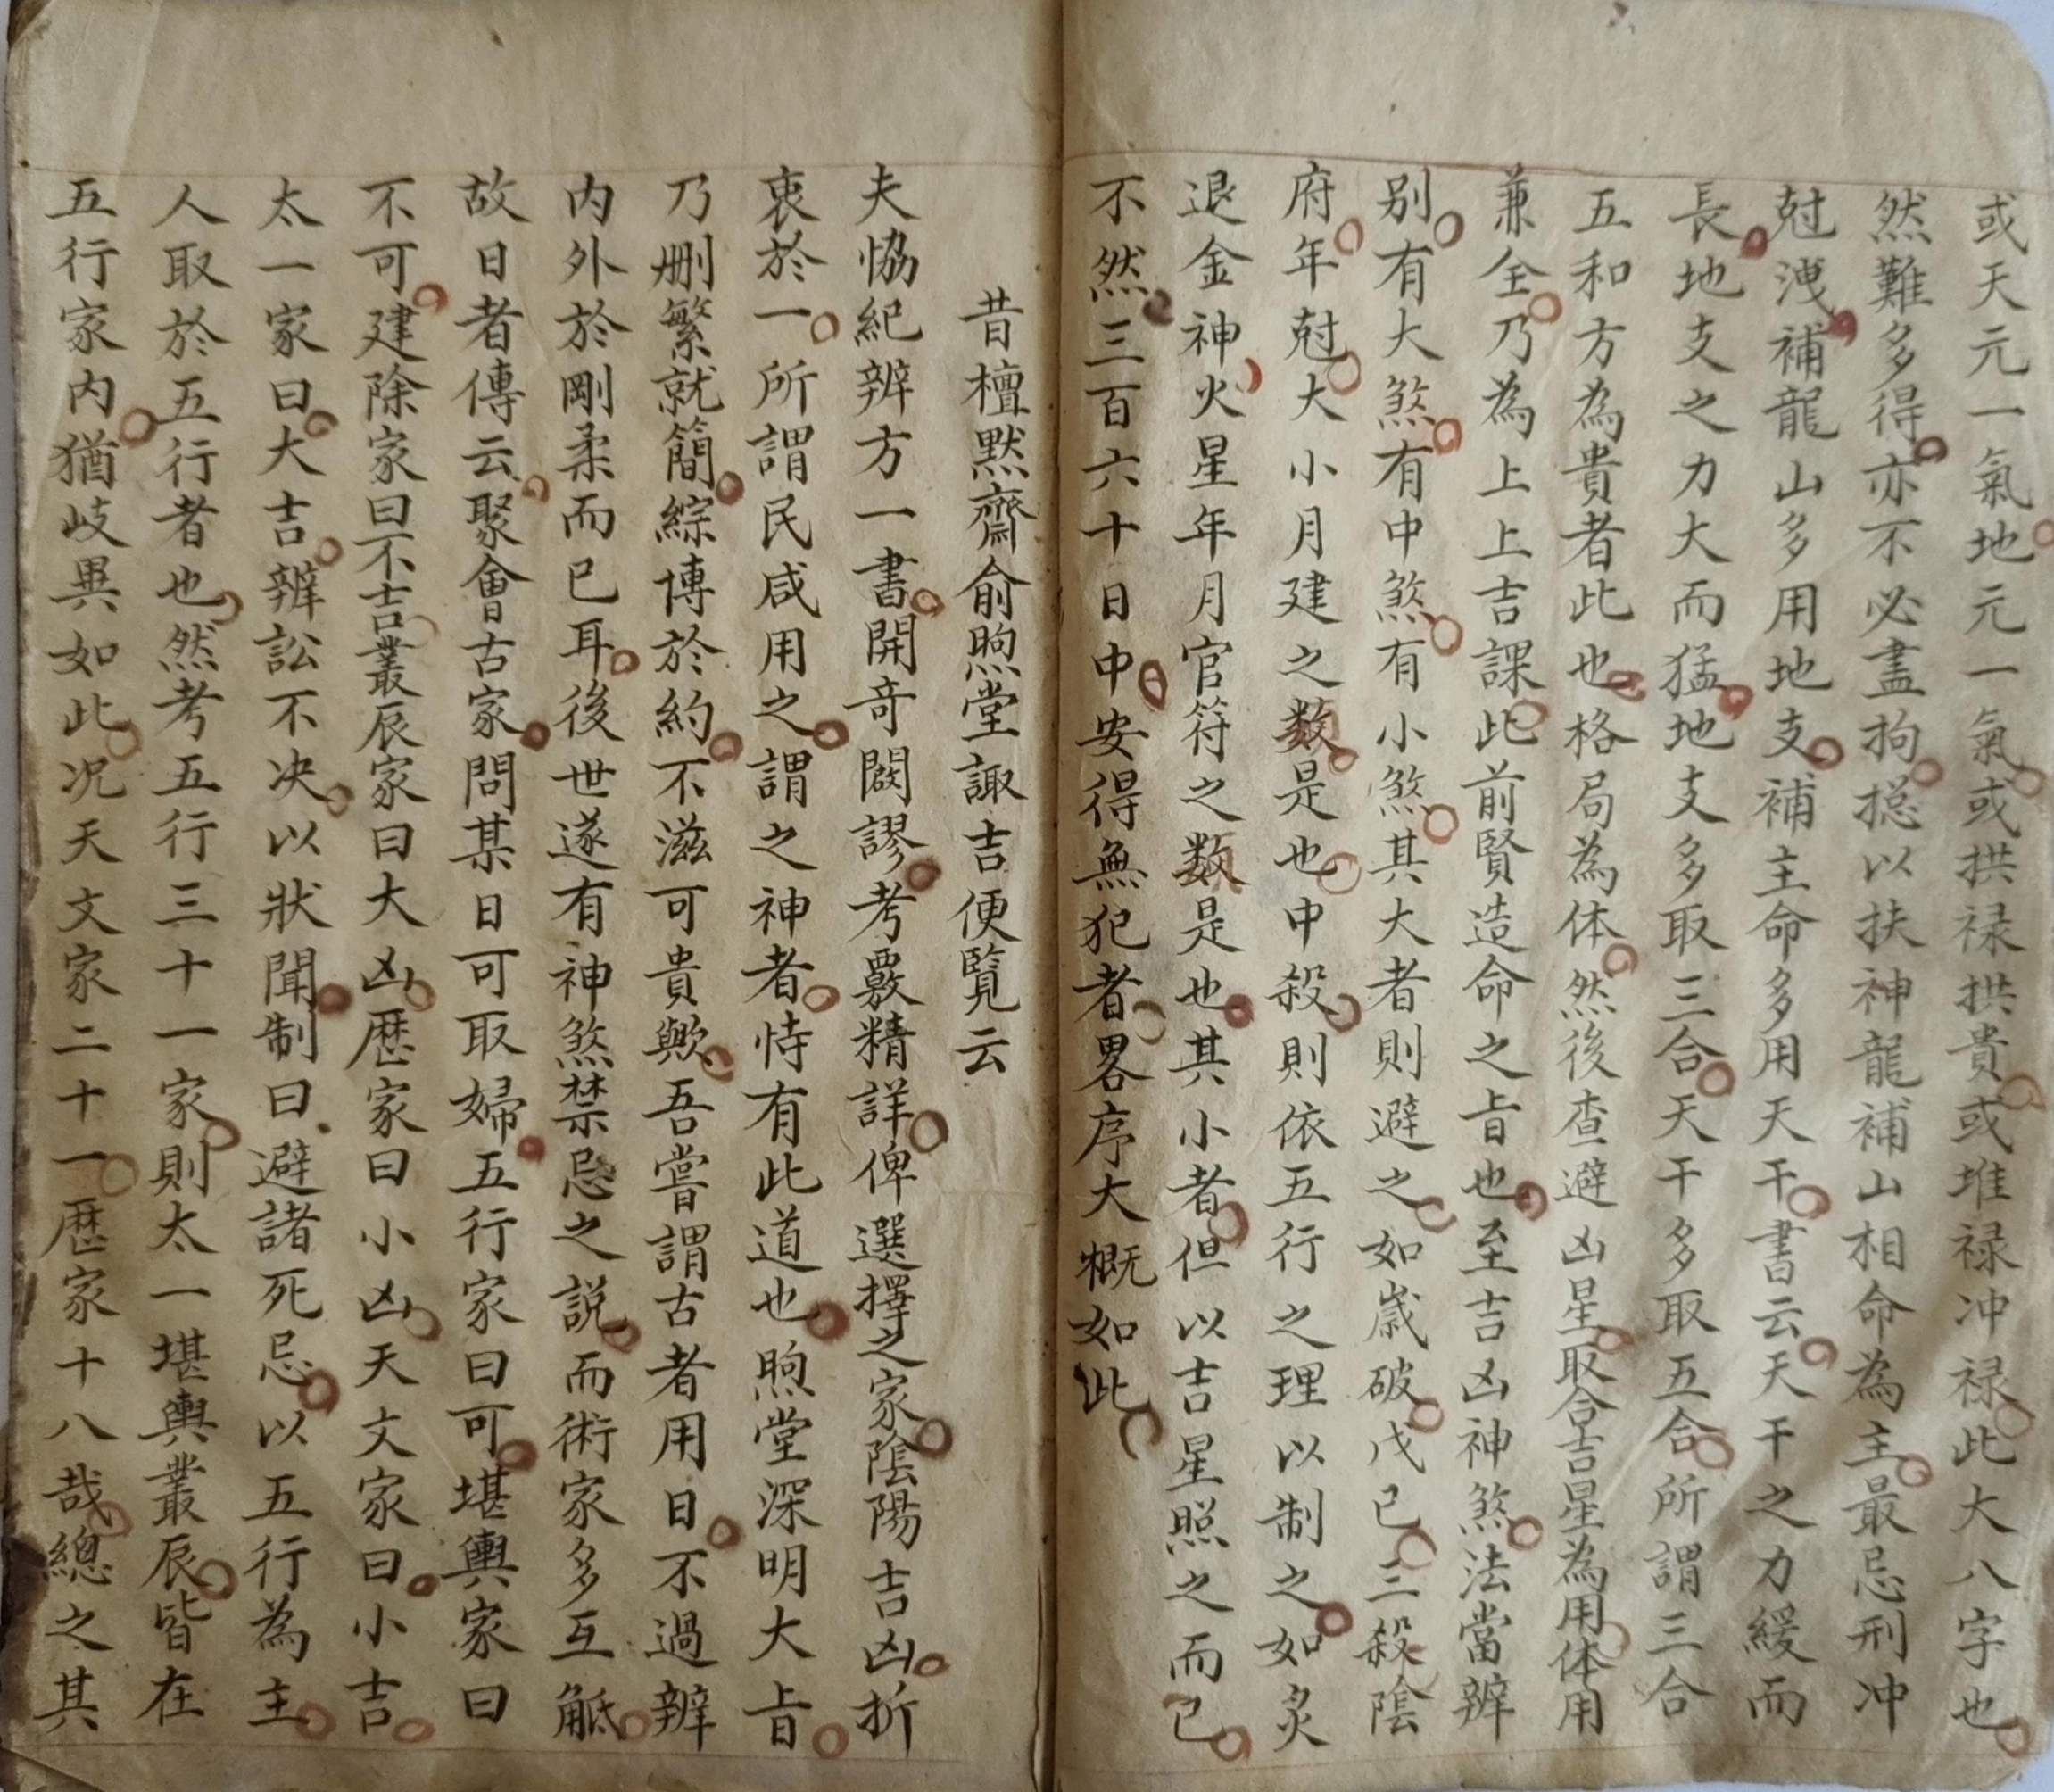 或天元一氣地元一氣或拱禄拱貴或堆禄冲禄此大八字也
然難多得亦不必盡拘摠以扶神龍補山相命為主最忌刑冲
尅洩補龍山多用地支補主命多用天干書云天干之力緩而
長地支之力大而猛地支多取三合天干多取五合所謂三合
五和方為貴者此也格局為体然後查避凶星取合吉星為用体用
兼全乃為上上吉課此前賢造命之旨也至吉凶神煞法當辨
别有大煞有中煞有小煞其大者則避之如嵗破戊已三殺陰
府年尅大小月建之数是也中殺則依五行之理以制之如炙
退金神火星年月官符之数是也其小者但以吉星照之而已
不然三百六十日中安得無犯者畧序大概如此
昔檀默齋俞煦堂諏吉便覽云
夫恊紀辨方一書開竒闢謬考覈精詳俾選擇之家陰陽吉凶折
衷於一所謂民咸用之謂之神者恃有此道也煦堂深明大旨
乃刪繁就簡綜博於約不滋可貴歟吾嘗謂古者用日不過辨
内外於剛柔而已耳後世遂有神煞禁忌之説而術家多互觝
故日者傳云聚會古家問某日可取婦五行家曰可堪輿家曰
不可建除家曰不吉叢辰家曰大凶歴家曰小凶天文家曰小吉
太一家曰大吉辨訟不决以狀聞制曰避諸死忌以五行為主
人取於五行者也然考五行三十一家則太一堪輿叢辰皆在
五行家内猶岐異如此况天文家二十一歴家十八哉總之其